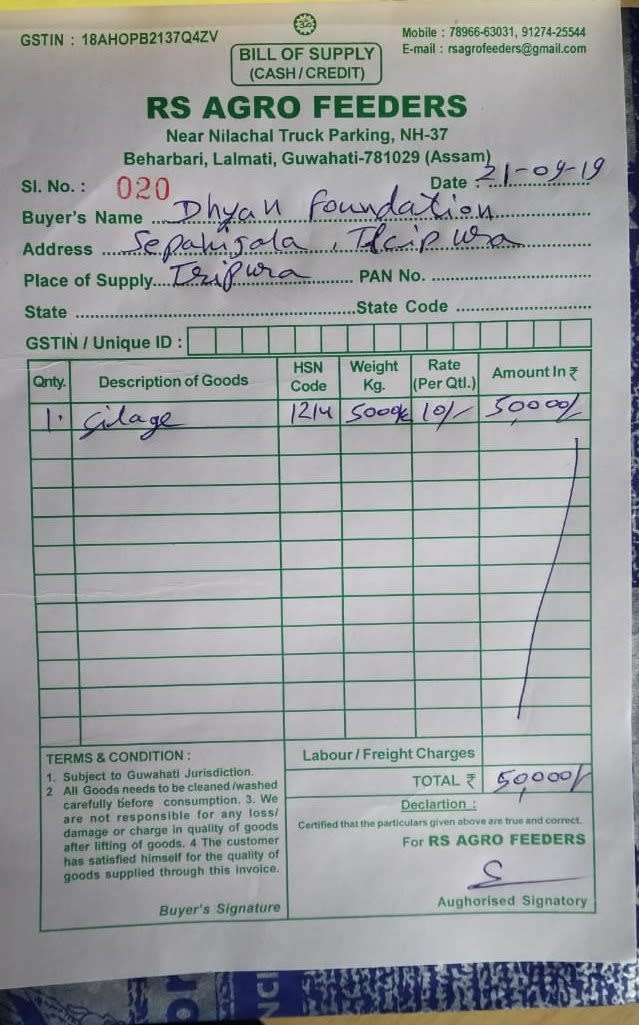 GSTIN : 18AHOPB2137Q4ZV
Mobile : 78966-63031, 91274-25544
E-mail : rsagrofeeders@gmail.com
BILL OF SUPPLY
(CASH/CREDIT)
RS AGRO FEEDERS
Near Nilachal Truck Parking, NH-37
Beharbari, Lalmati, Guwahati-781029 (Assam)
Sl. No. : 020 Date : 21-09-19
Buyer's Name Dhyan foundation
Address Sepahijala, Tripura
Place of Supply.... Tripura PAN No.
State State Code
GSTIN / Unique ID :
Qnty. Description of Goods HSN Code Weight Kg. Rate (Per Qtl.) Amount In ₹
1. Silage 1214 5000k 10/- 50,000/
Labour / Freight Charges
TOTAL ₹ 50,000/
TERMS & CONDITION :
1. Subject to Guwahati Jurisdiction.
2 All Goods needs to be cleaned /washed
carefully before consumption. 3. We
are not responsible for any loss/
damage or charge in quality of goods
after lifting of goods. 4 The customer
has satisfied himself for the quality of
goods supplied through this invoice.
Buyer's Signature
Declartion :
Certified that the particulars given above are true and correct.
For RS AGRO FEEDERS
Aughorised Signatory